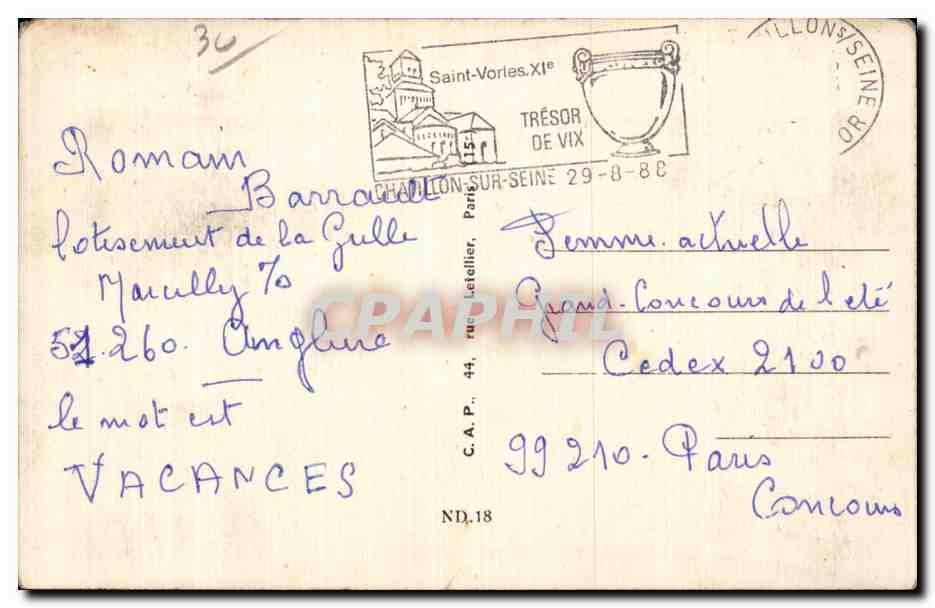 30
Saint-Vorles.XIe
TRÉSOR
DE VIX
CHATILLON-SUR-SEINE 29-8-88
ILLON S/SEINE
OR
Romain
Barrault
lotissement de la Gulle
Marcilly
51.260. Anglure
le mot est
VACANCES
C.A.P., 44, rue Letellier, Paris, 15e
ND.18
Femme actuelle
Grand-Concours de l'été
Cedex 2100
99210. Paris
Concours
CPAPHIL